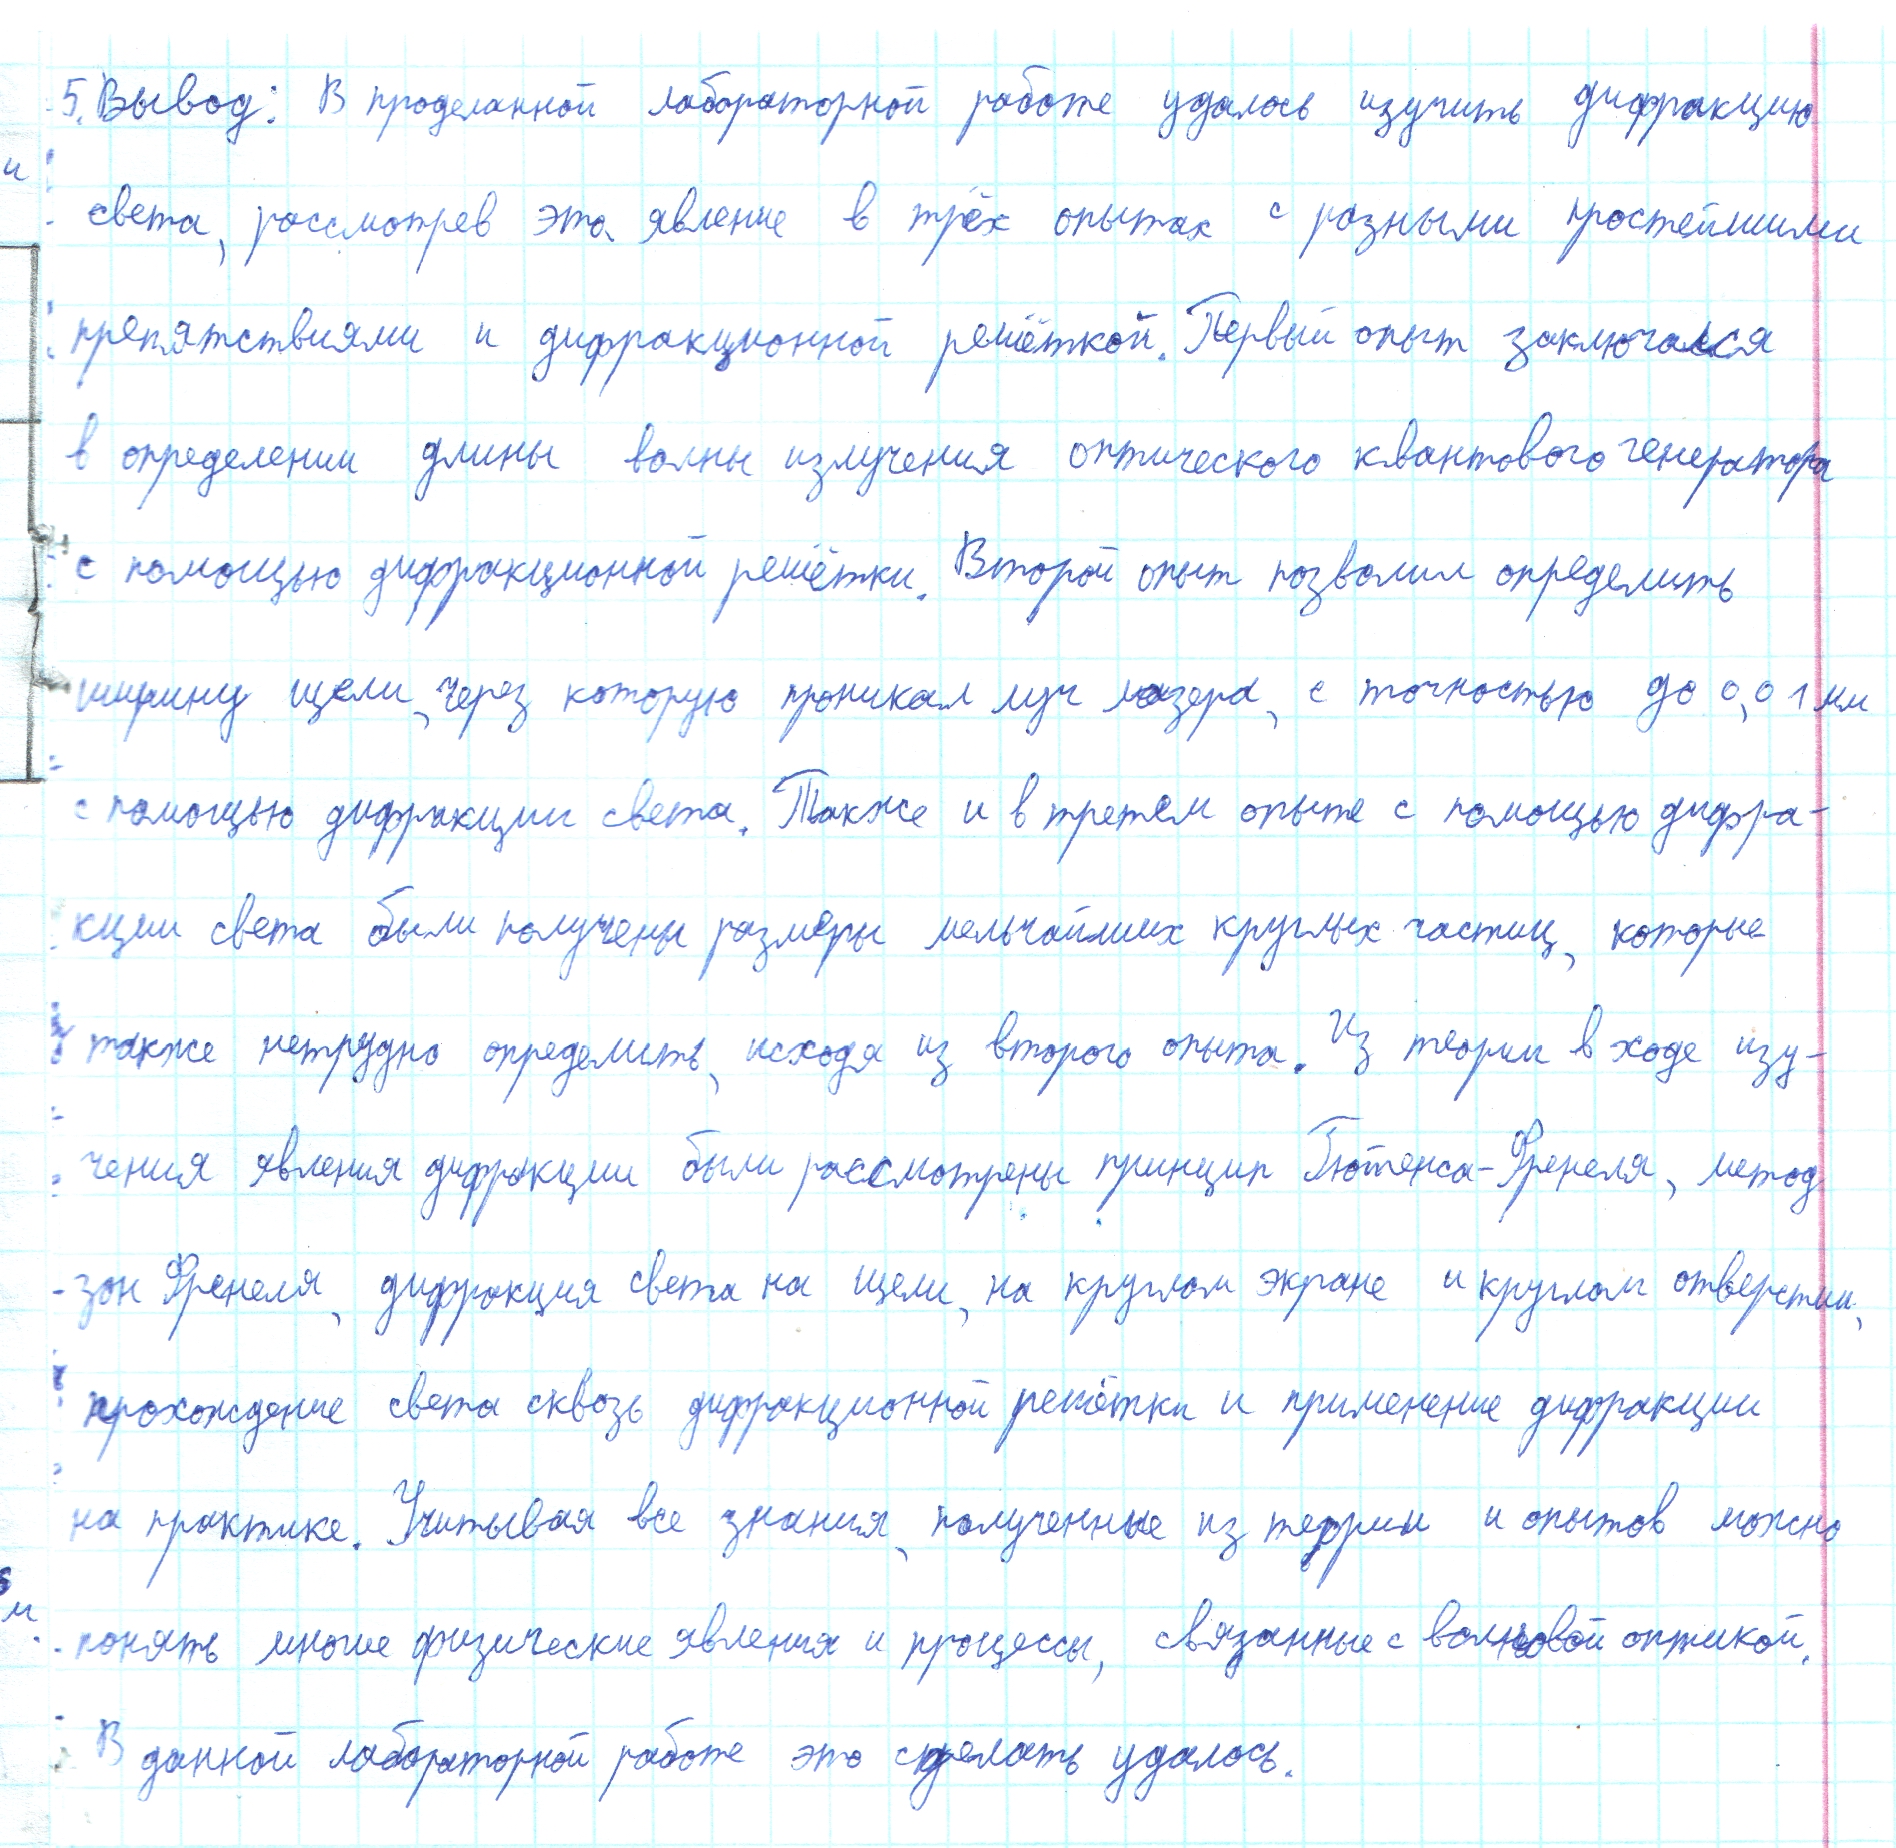 5. Вывод: В проделанной лабораторной работе удалось изучить дифракцию
света, рассмотрев это явление в трёх опытах с разными простейшими
препятствиями и дифракционной решёткой. Первый опыт заключался
в определении длины волны излучения оптического квантового генератора
с помощью дифракционной решётки. Второй опыт позволил определить
ширину щели, через которую проникал луч лазера, с точностью до 0,01 мм
с помощью дифракции света. Также и в третем опыте с помощью дифра-
кции света были получены размеры мельчайших круглых частиц, которые
также нетрудно определить, исходя из второго опыта. Из теории в ходе изу-
чения явления дифракции были рассмотрены принцип Гюйгенса-Френеля, метод
зон Френеля, дифракция света на щели, на круглом экране и круглом отверстии,
прохождение света сквозь дифракционной решётки и применение дифракции
на практике. Учитывая все знания, полученные из теории и опытов можно
понять многие физические явления и процессы, связанные с волновой оптикой.
В данной лабораторной работе это сделать удалось.